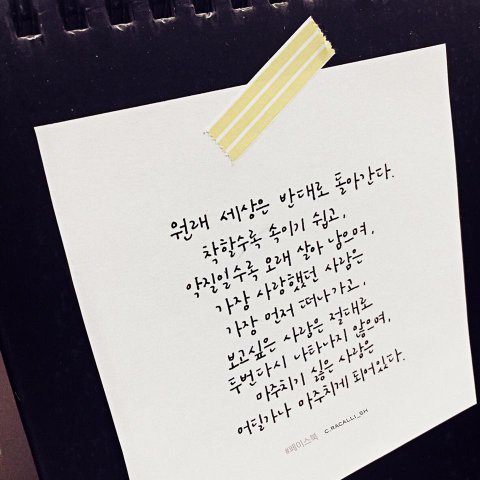 원래 세상은 반대로 돌아간다.
착할수록 속이기 쉽고,
악질일수록 오래 살아 남으며,
가장 사랑했던 사람은
가장 먼저 떠나가고,
보고싶은 사람은 절대로
두번다시 나타나지 않으며,
마주치기 싫은 사람은
어딜가나 마주치게 되어있다.
#페이스북 C.RACALLI_SH